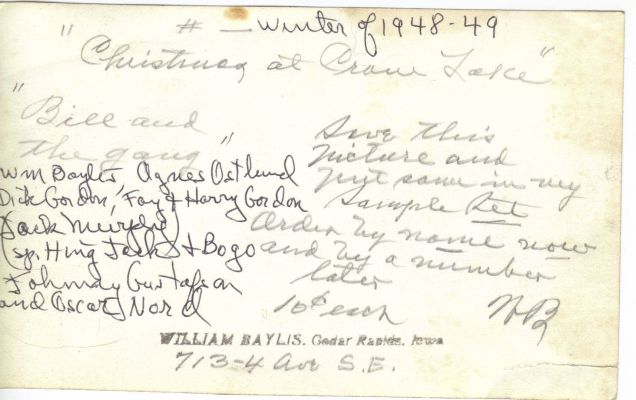 # — Winter of 1948-49
"Christmas at Crane Lake"
"Bill and
the gang"
Wm Baylis Agnes Ostlund
Dick Gordon, Fay & Harry Gordon
Jack Murphy
(sp. Hing Jack & Bogo
Johnny Gustafson
and Oscar Nord
Save this
picture and
put same in my
Sample Set
Order by name now
and by a number
later
10¢ each WB
WILLIAM BAYLIS. Cedar Rapids. Iowa
713-4 Ave S.E.